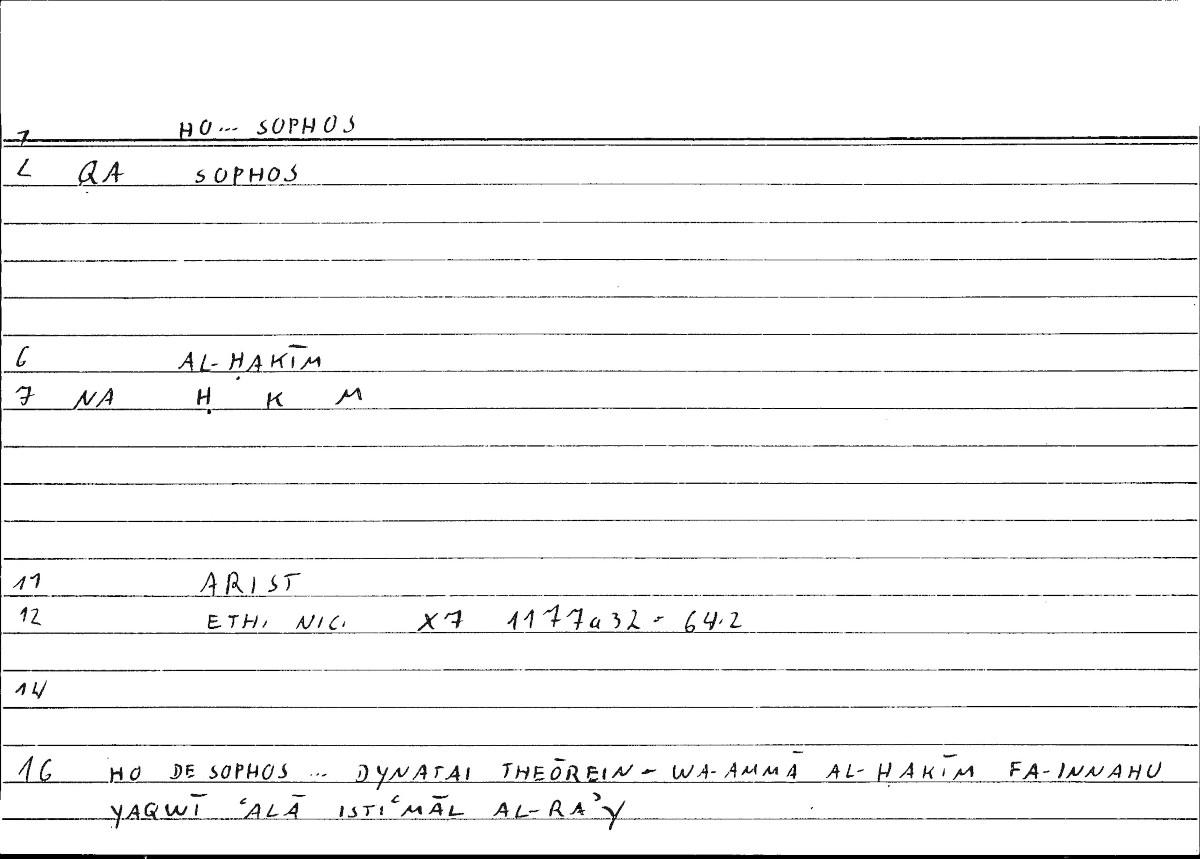 1 HO... SOPHOS
2 QA SOPHOS
6 AL-ḤAKĪM
7 NA Ḥ K M
11 ARIST
12 ETH. NIC. X7 1177a32 = 561.2
14
16 HO DE SOPHOS ... DYNATAI THEŌREIN = WA-AMMĀ AL-ḤAKĪM FA-INNAHU
YAQWĪ ʿALĀ ISTIʿMĀL AL-RAʾY